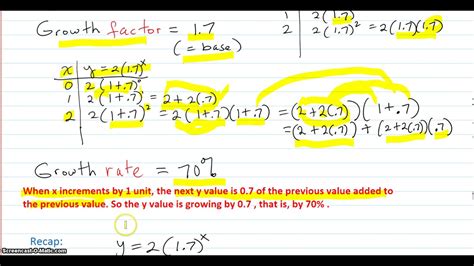 Growth factor = 1.7
(= base)
1 2(1.7)
2 2(1.7)² = 2(1.7)(1.7)
x y = 2(1.7)ˣ
0 2(1+.7)⁰
1 2(1+.7) = 2+2(.7)
2 2(1+.7)² = 2(1+.7)(1+.7) = (2+2(.7))(1+.7)
= (2+2(.7)) + (2+2(.7))(.7)
Growth rate = 70%
When x increments by 1 unit, the next y value is 0.7 of the previous value added to
the previous value. So the y value is growing by 0.7 , that is, by 70% .
Recap:
y = 2(1.7)ˣ
Screencast-O-Matic.com